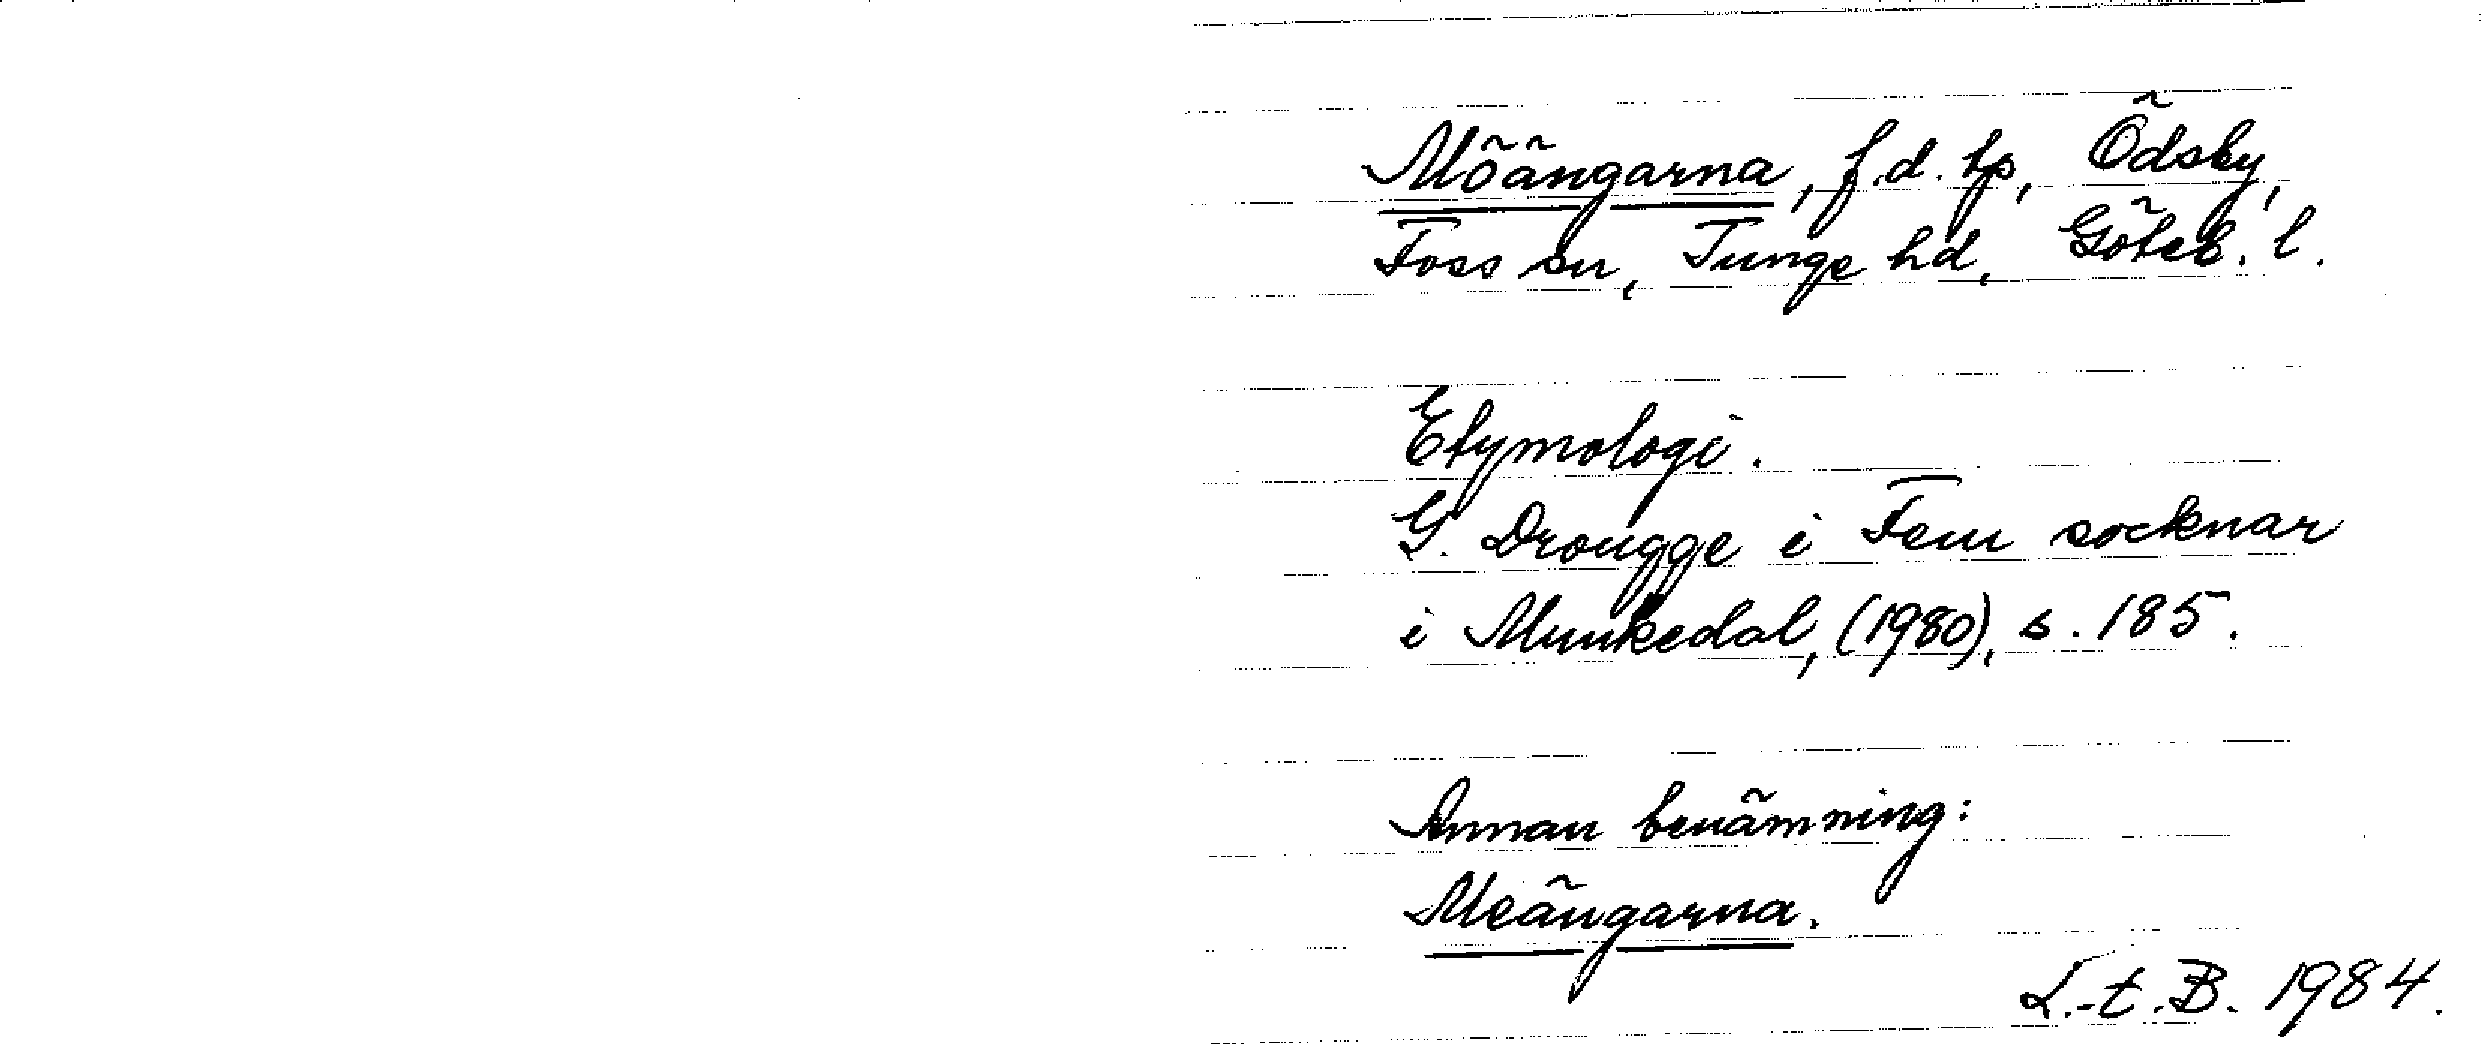 Möängarna, f.d. tp, Ödsby,
Foss sn, Tunge hd, Göteb. l.
Etymologi.
G. Drougge i Fem socknar
i Munkedal, (1980), s. 185.
Annan benämning:
Meängarna.
L.-t. B. 1984.